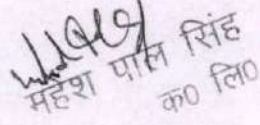 महेश पाल सिंह
क० लि०